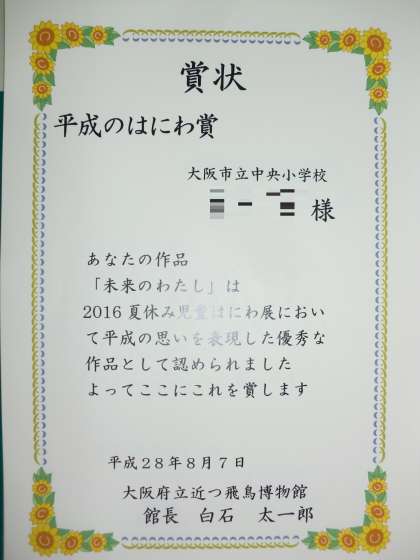 賞状
平成のはにわ賞
大阪市立中央小学校
様
あなたの作品
「未来のわたし」は
2016夏休み児童はにわ展におい
て平成の思いを表現した優秀な
作品として認められました
よってここにこれを賞します
平成28年8月7日
大阪府立近つ飛鳥博物館
館長 白石 太一郎